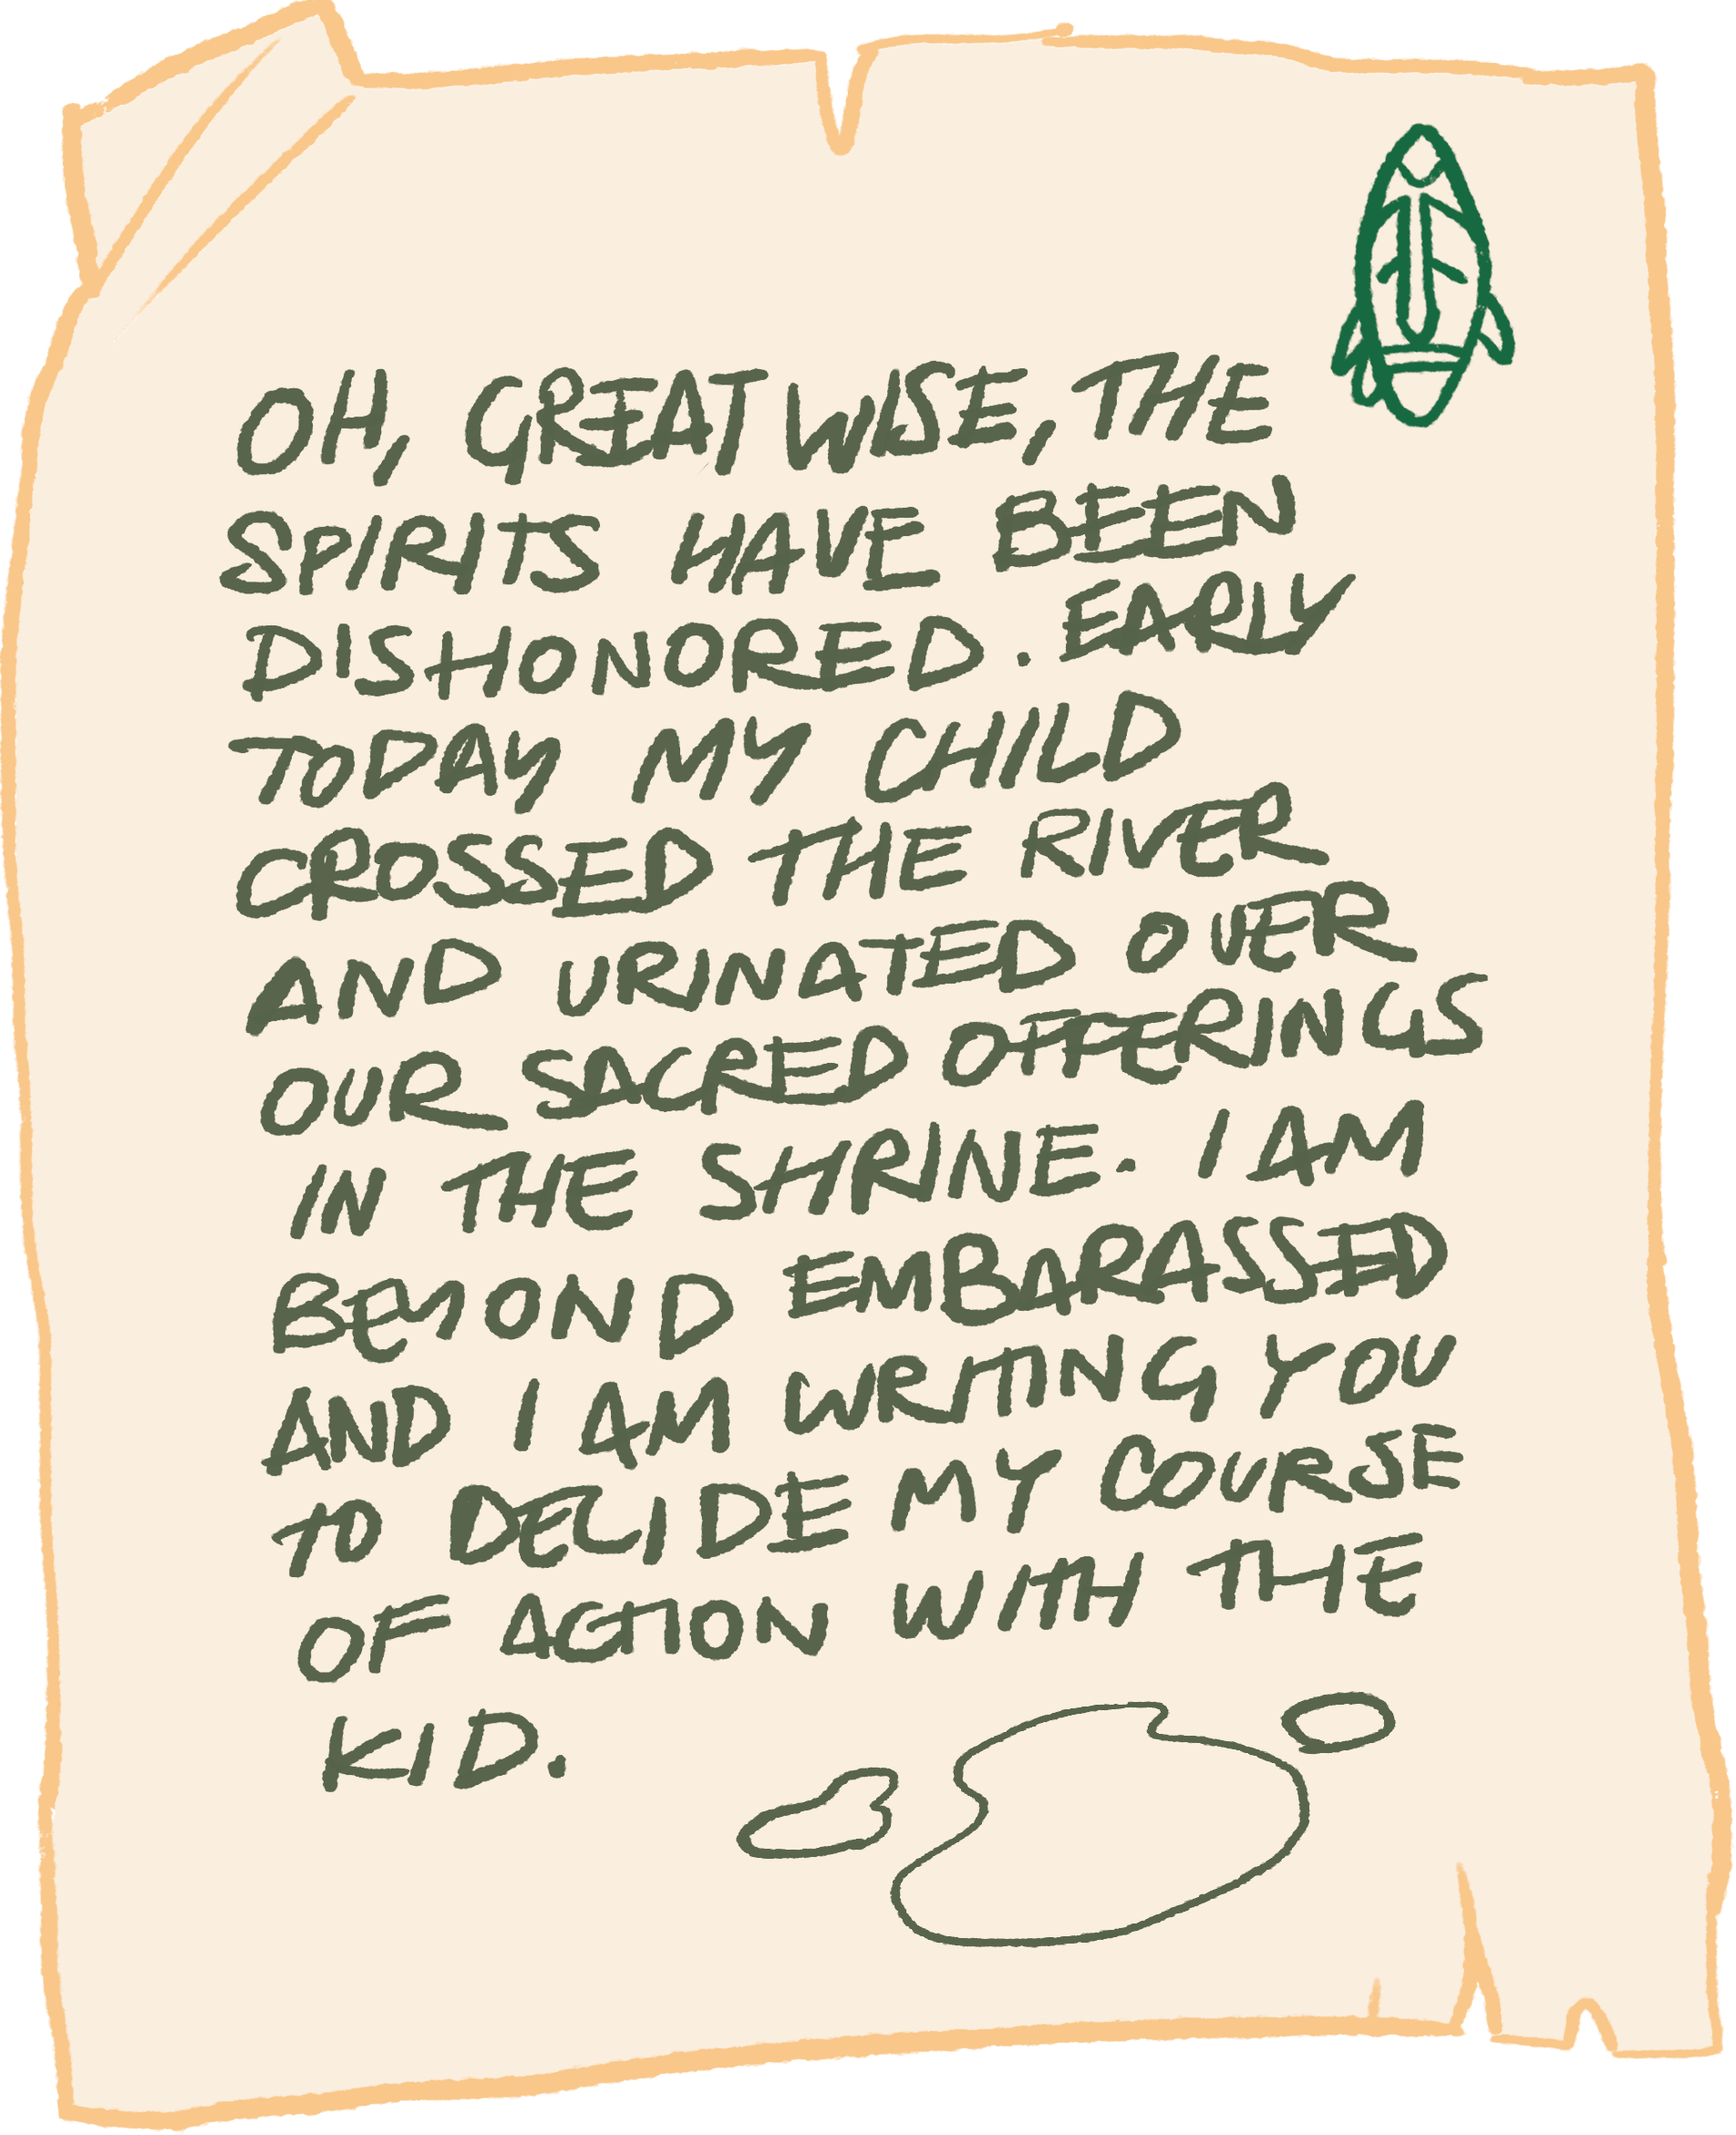 OH, GREAT WISE, THE
SPIRITS HAVE BEEN
DISHONORED. EARLY
TODAY MY CHILD
CROSSED THE RIVER
AND URINATED OVER
OUR SACRED OFFERINGS
IN THE SHRINE. I AM
BEYOND EMBARASSED
AND I AM WRITING YOU
TO DECIDE MY COURSE
OF ACTION WITH THE
KID.